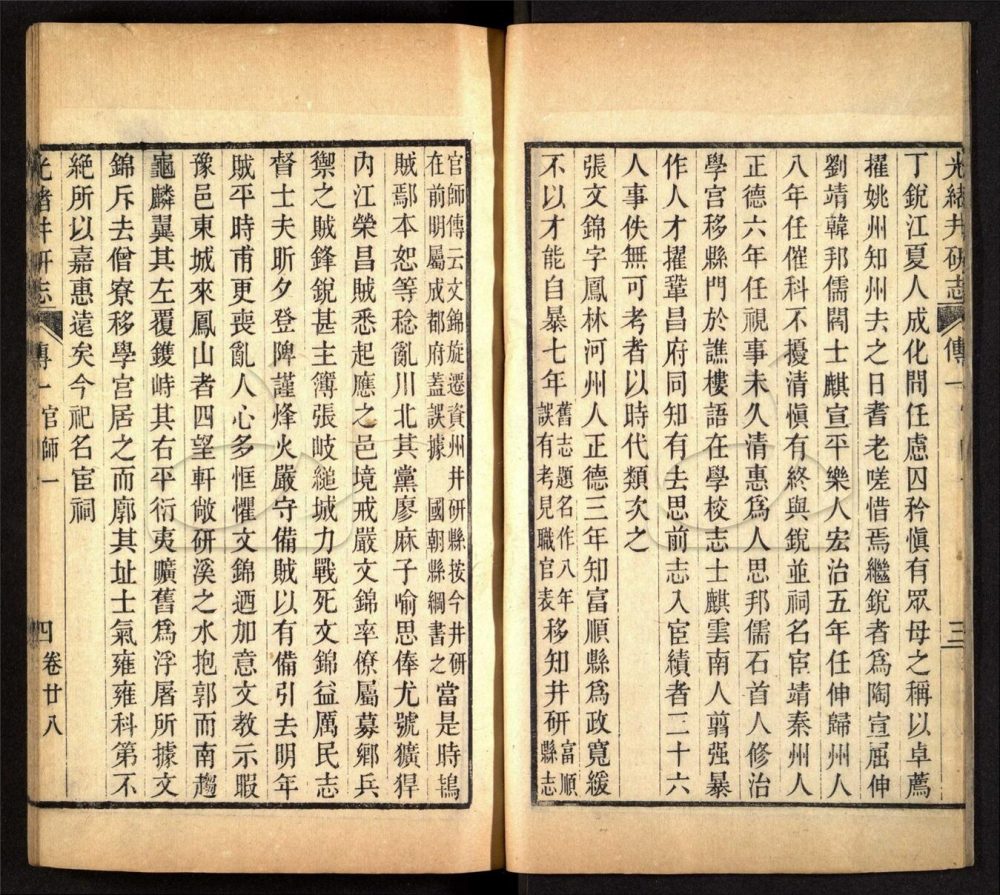 光緒井研志 傳一 三
丁銳江夏人成化間任慮囚矜慎有眾母之稱以卓薦
擢姚州知州去之日耆老嗟惜焉繼銳者爲陶宣屈伸
劉靖韓邦儒閻士麒宣平樂人宏治五年任伸歸州人
八年任催科不擾清愼有終與銳並祠名宦靖秦州人
正德六年任視事未久清惠爲人思邦儒石首人修治
學宮移縣門於譙樓語在學校志士麒雲南人翦强暴
作人才擢鞏昌府同知有去思前志入宦績者二十六
人事佚無可考者以時代類次之
張文錦字鳳林河州人正德三年知富順縣爲政寬緩
不以才能自暴七年舊志題名作八年誤有考見職官表移知井研富順縣志
官師傳云文錦旋遷資州井研縣按今井研在前明屬成都府蓋誤據 國朝縣綱書之當是時鴇
賊鄢本恕等稔亂川北其黨廖麻子喻思俸尤號獷猂
內江榮昌賊悉起應之邑境戒嚴文錦率僚屬募鄉兵
禦之賊鋒銳甚主簿張岐縋城力戰死文錦益厲民志
督士夫昕夕登陴謹烽火嚴守備賊以有備引去明年
賊平時甫更喪亂人心多恇懼文錦迺加意文教示暇
豫邑東城來鳳山者四望軒敞研溪之水抱郭而南趨
龜麟翼其左覆鑊峙其右平衍夷曠舊爲浮屠所據文
錦斥去僧寮移學宮居之而廓其址士氣雍雍科第不
絕所以嘉惠遠矣今祀名宦祠
光緒井研志 傳一 官師一 四 卷廿八